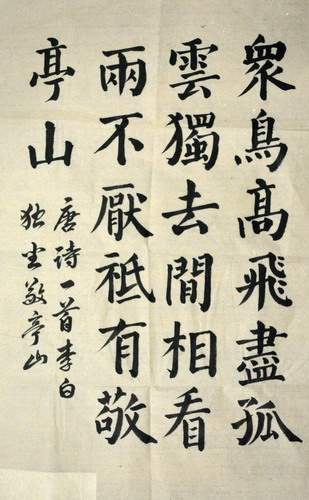 衆鳥高飛盡孤
雲獨去閒相看
兩不厭祗有敬
亭山
唐诗一首李白
独坐敬亭山